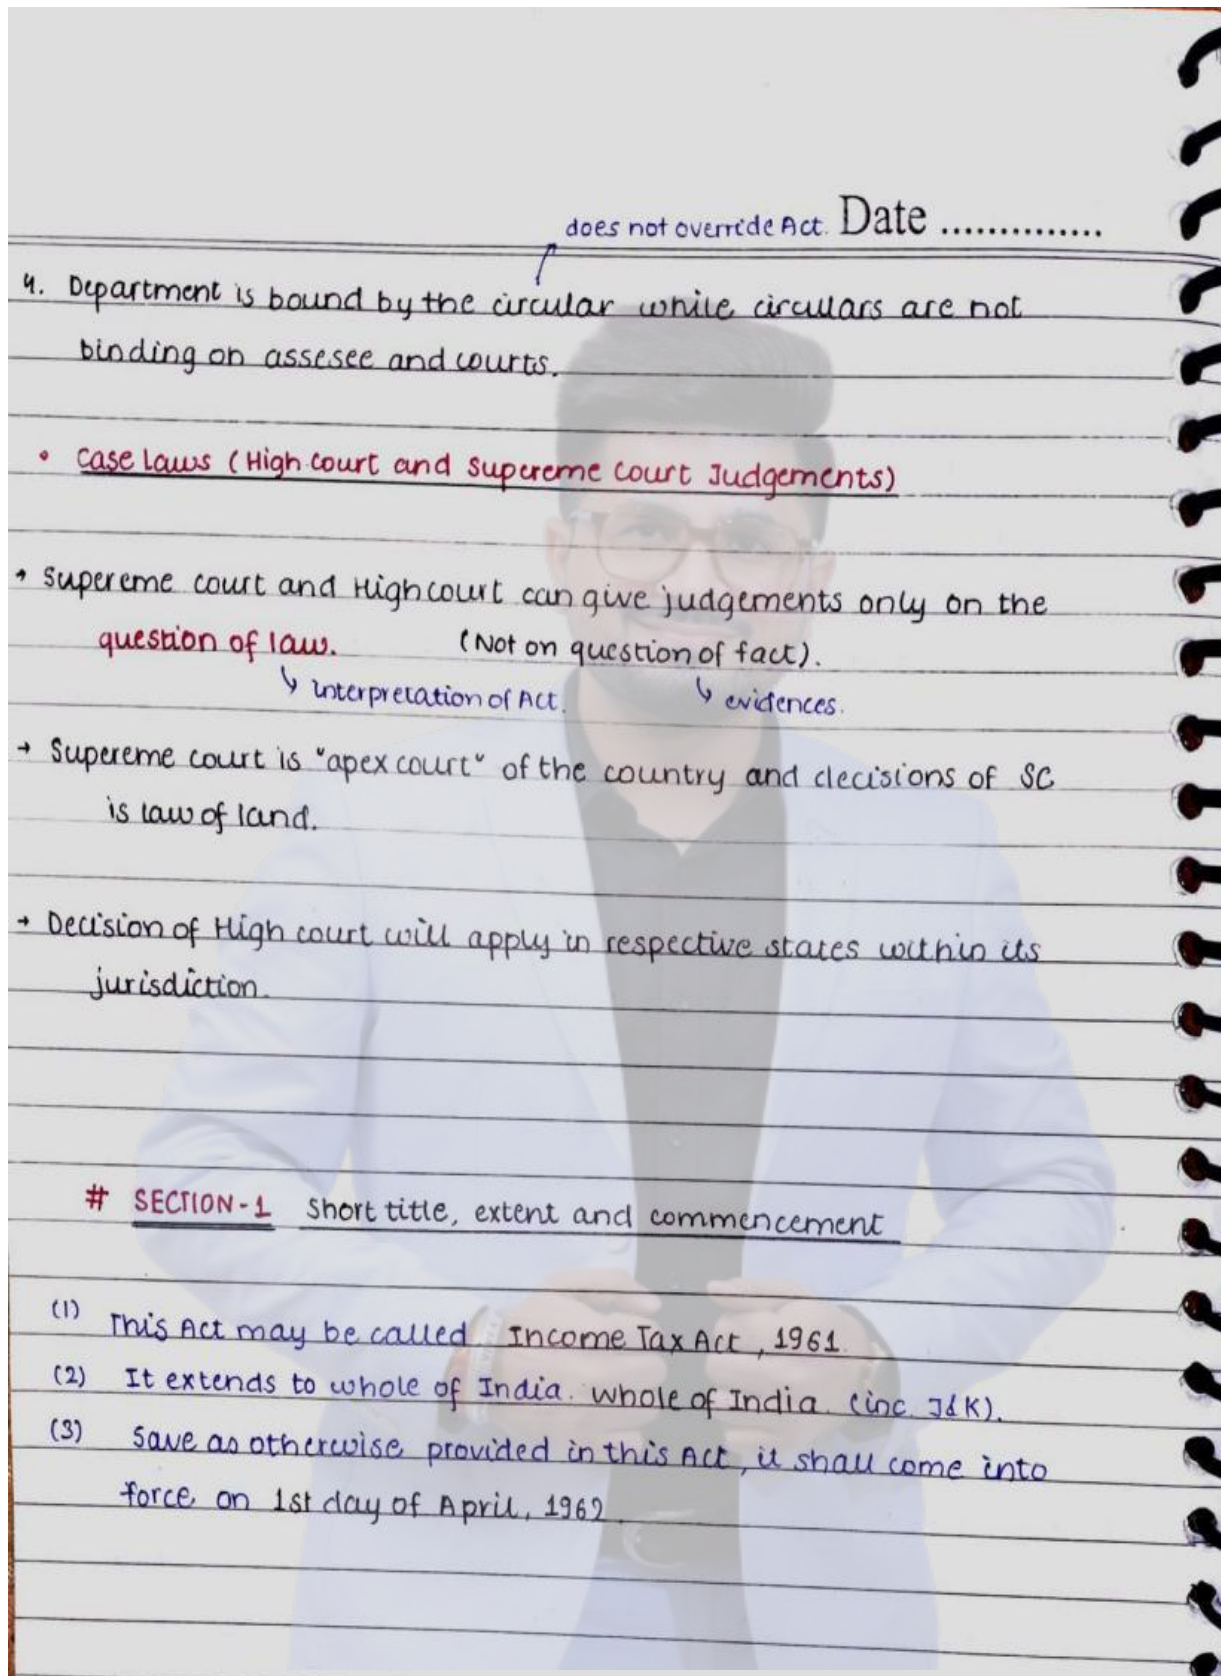 does not override Act. Date ..............
4. Department is bound by the circular while circulars are not
binding on assesee and courts.
• Case Laws (High court and Supereme court Judgements)
→ Supereme court and High court can give judgements only on the
question of law. (Not on question of fact).
↳ interpretation of Act. ↳ evidences.
→ Supereme court is "apex court" of the country and decisions of SC
is law of land.
→ Decision of High court will apply in respective states within its
jurisdiction.
# SECTION-1 Short title, extent and commencement
(1) This Act may be called Income Tax Act, 1961.
(2) It extends to whole of India. whole of India. (inc. J&K).
(3) Save as otherwise provided in this Act, it shall come into
force on 1st day of April, 1962.